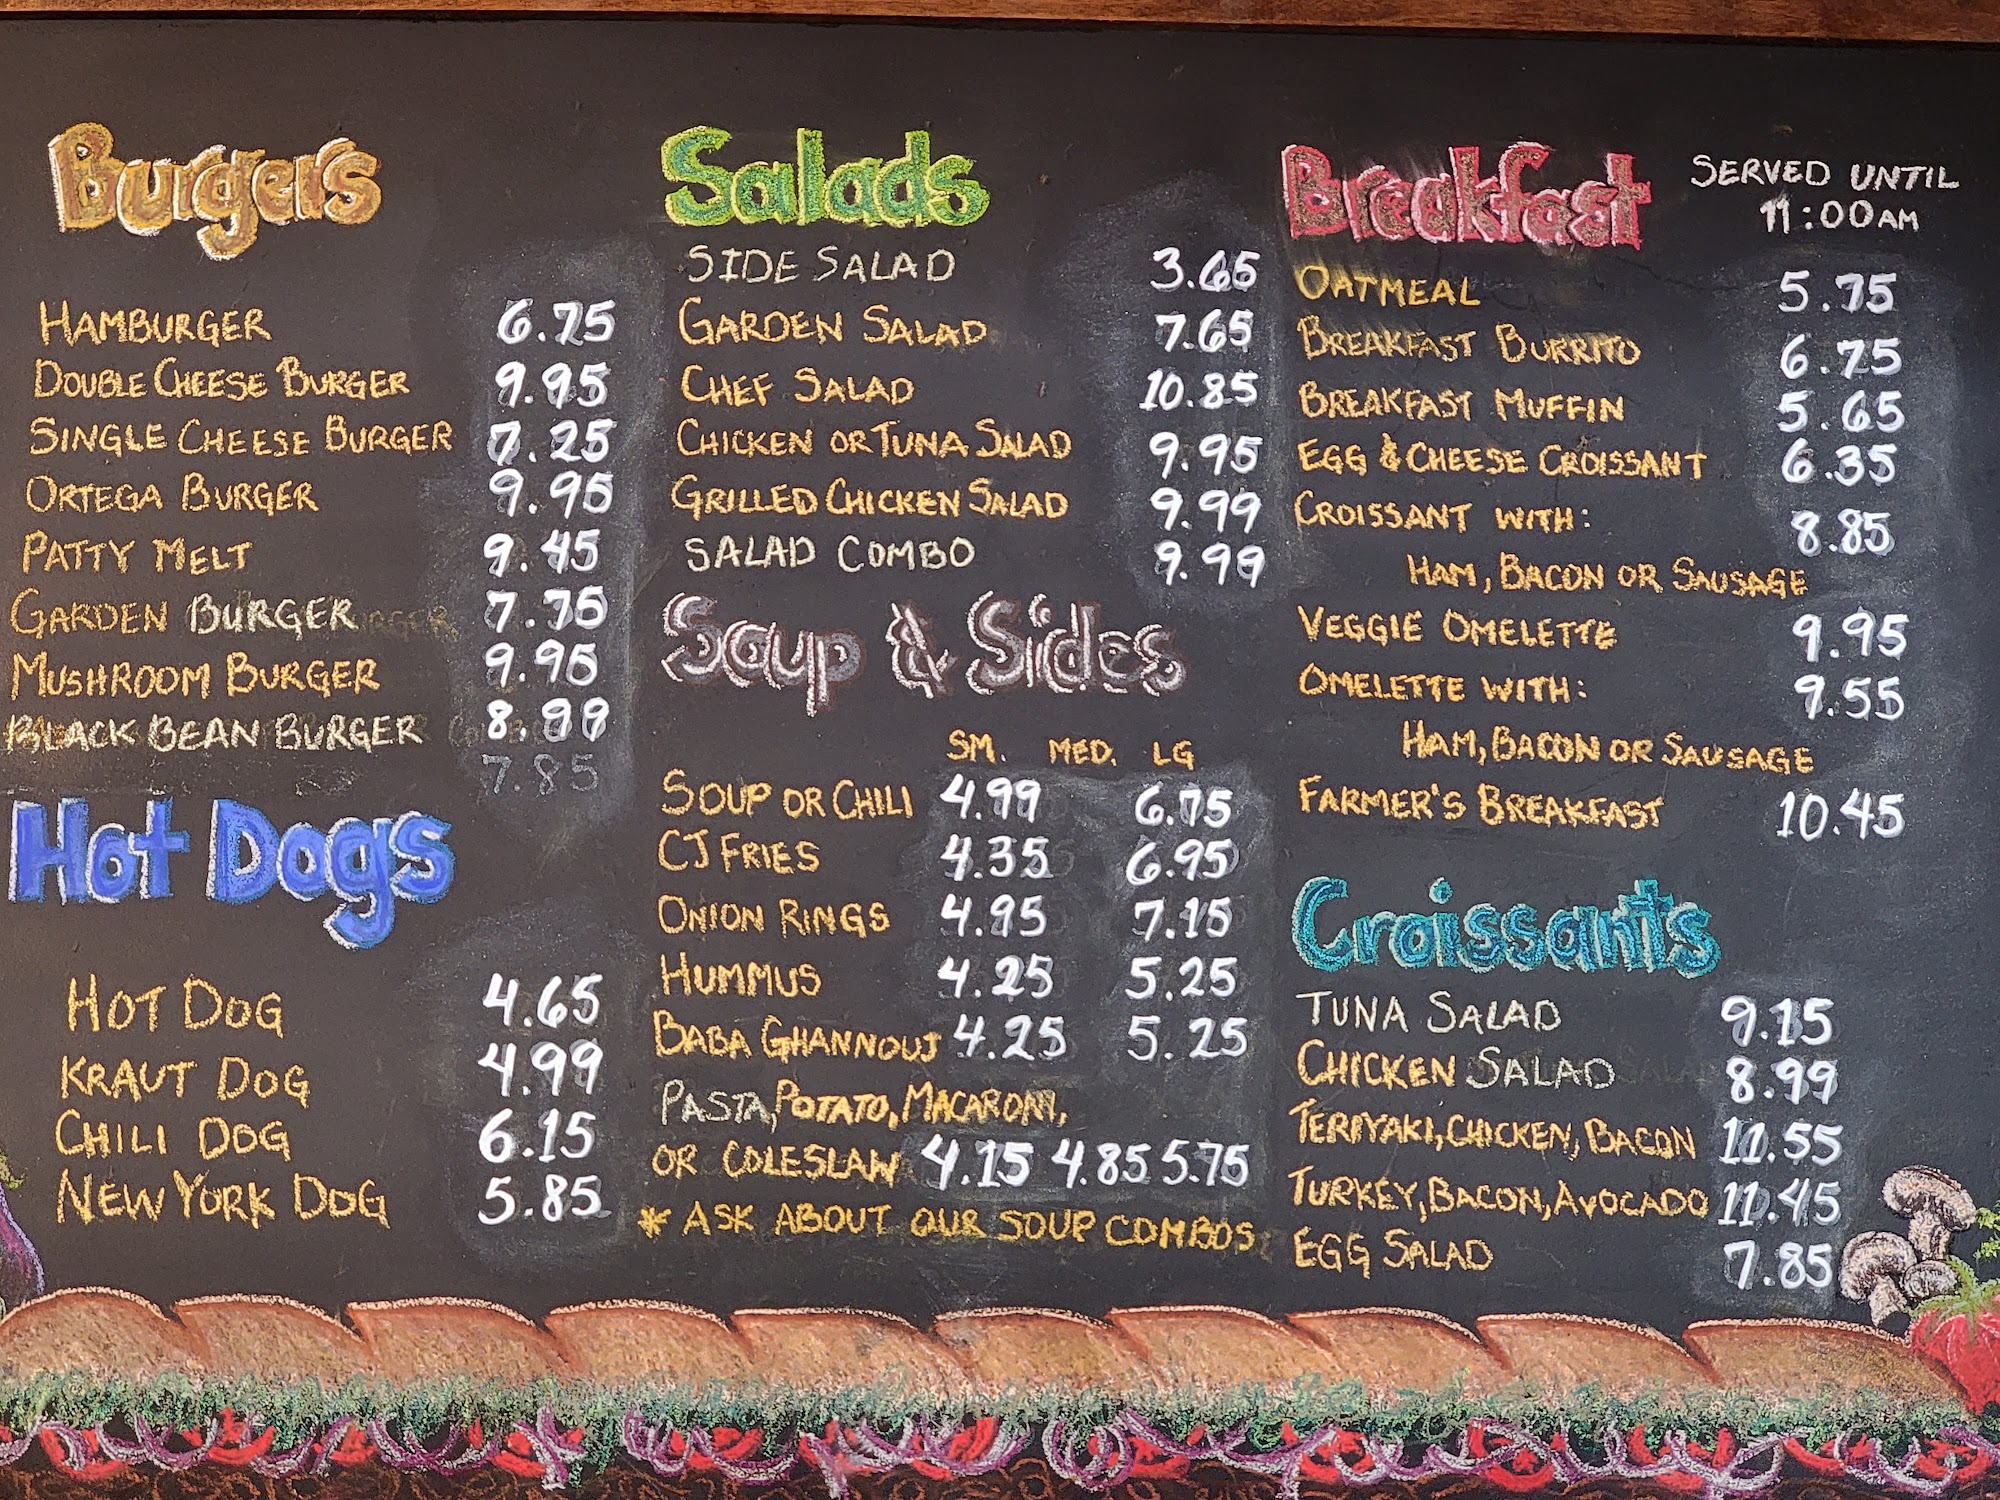 Burgers
HAMBURGER 6.75
DOUBLE CHEESE BURGER 9.95
SINGLE CHEESE BURGER 7.25
ORTEGA BURGER 9.95
PATTY MELT 9.45
GARDEN BURGER 7.75
MUSHROOM BURGER 9.95
BLACK BEAN BURGER 8.99
7.85
Hot Dogs
HOT DOG 4.65
KRAUT DOG 4.99
CHILI DOG 6.15
NEW YORK DOG 5.85
Salads
SIDE SALAD 3.65
GARDEN SALAD 7.65
CHEF SALAD 10.85
CHICKEN OR TUNA SALAD 9.95
GRILLED CHICKEN SALAD 9.99
SALAD COMBO 9.99
Soup & Sides
SM. MED. LG
SOUP OR CHILI 4.99 6.75
CJ FRIES 4.35 6.95
ONION RINGS 4.95 7.15
HUMMUS 4.25 5.25
BABA GHANNOUJ 4.25 5.25
PASTA, POTATO, MACARONI,
OR COLESLAW 4.15 4.85 5.75
* ASK ABOUT OUR SOUP COMBOS
Breakfast SERVED UNTIL
11:00AM
OATMEAL 5.75
BREAKFAST BURRITO 6.75
BREAKFAST MUFFIN 5.65
EGG & CHEESE CROISSANT 6.35
CROISSANT WITH: 8.85
HAM, BACON OR SAUSAGE
VEGGIE OMELETTE 9.95
OMELETTE WITH: 9.55
HAM, BACON OR SAUSAGE
FARMER'S BREAKFAST 10.45
Croissants
TUNA SALAD 9.15
CHICKEN SALAD 8.99
TERIYAKI, CHICKEN, BACON 11.55
TURKEY, BACON, AVOCADO 11.45
EGG SALAD 7.85